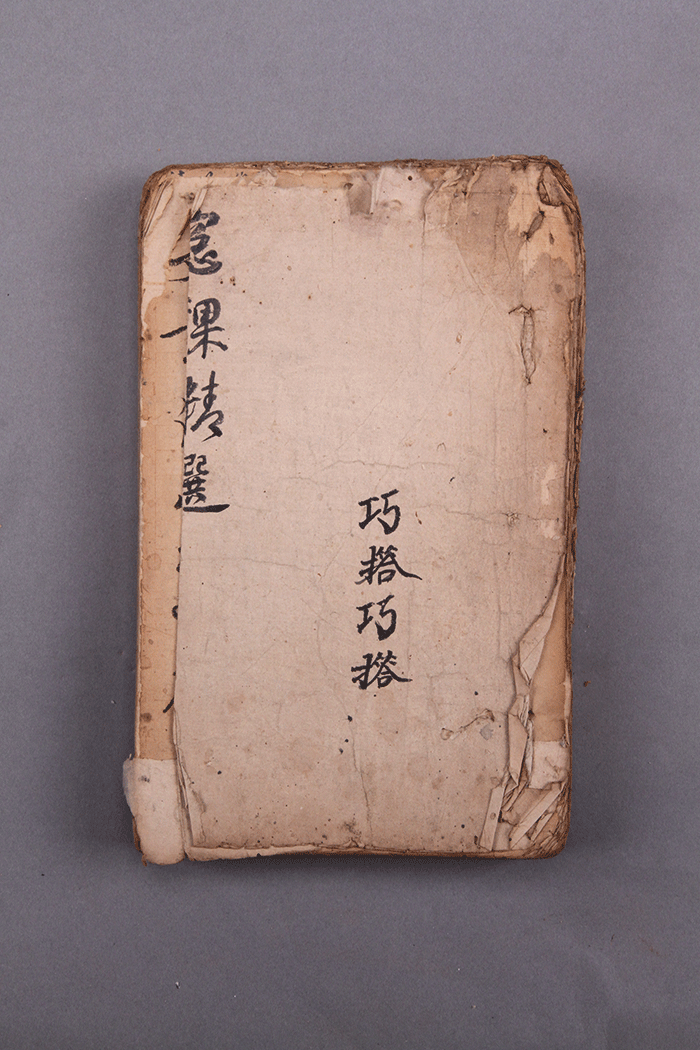 巧搭巧搭
窓課精選